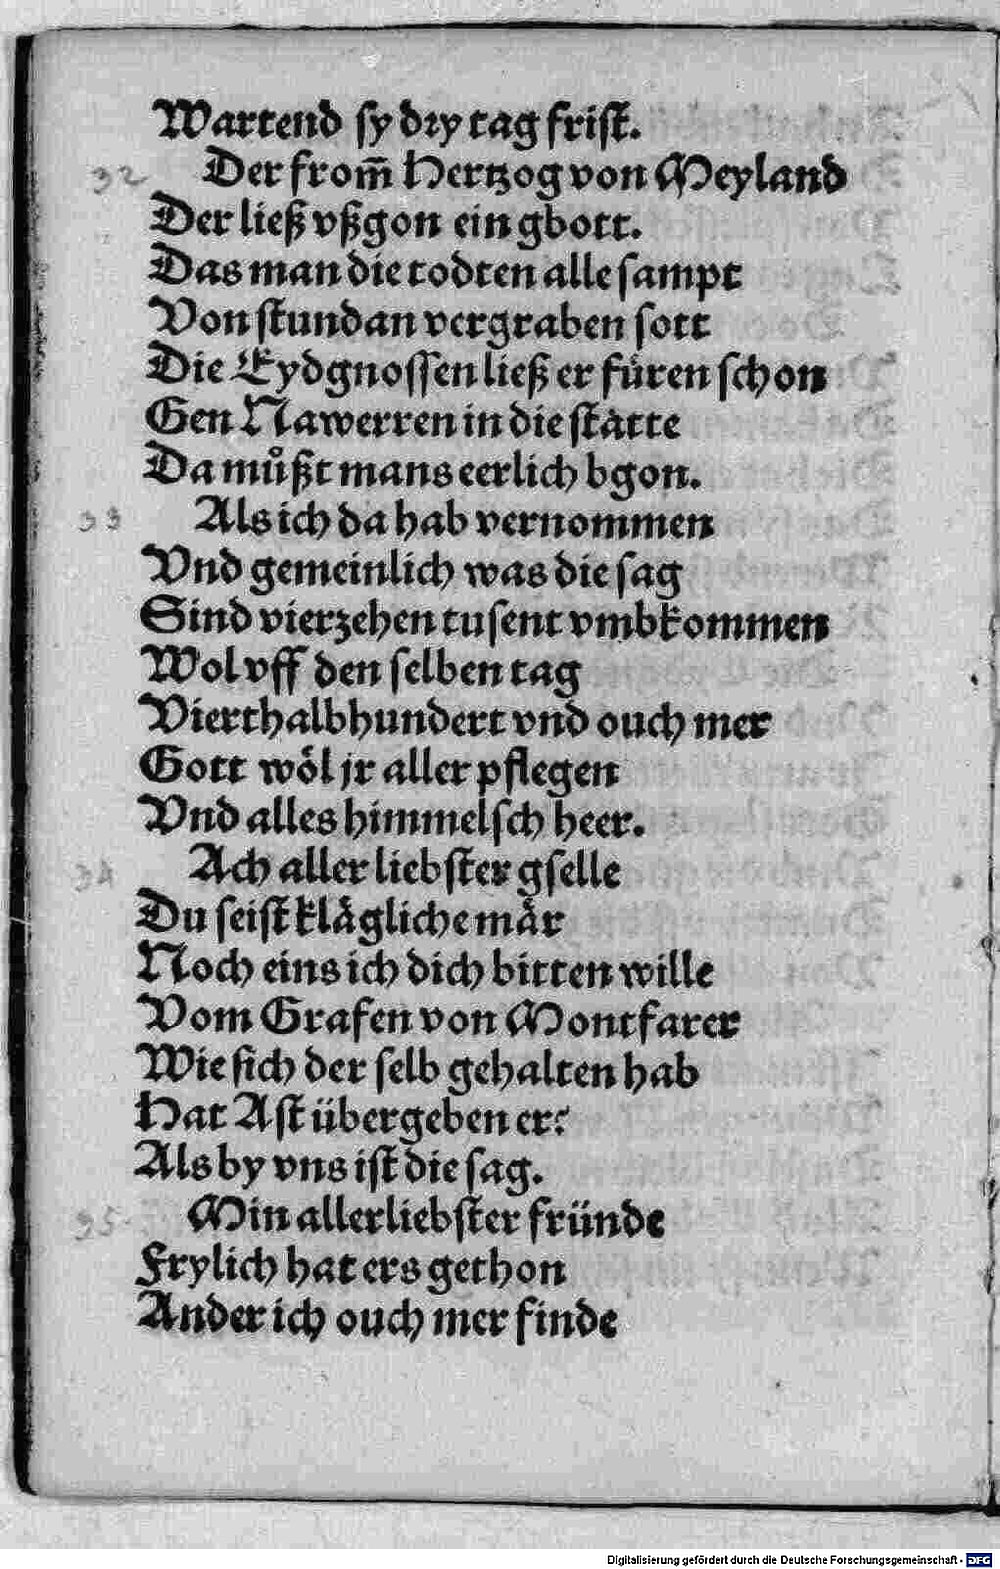 Wartend sy dry tag frist.
32 Der from̄ Hertzog von Meyland
Der ließ vßgon ein gbott.
Das man die todten alle sampt
Von stund an vergraben sott
Die Eydgnossen ließ er füren schon
Gen Nawerren in die statte
Da můßt mans eerlich bgon.
33 Als ich da hab vernommen
Vnd gemeinlich was die sag
Sind vierzehen tusent vmbkommen
Wol vff den selben tag
Vierthalbhundert vnd ouch mer
Gott wöl jr aller pflegen
Vnd alles himmelsch heer.
34 Ach aller liebster gselle
Du seist klägliche mär
Noch eins ich dich bitten wille
Vom Grafen von Montfarer
Wie sich der selb gehalten hab
Hat Ast übergeben er:
Als by vns ist die sag.
35 Min allerliebster fründe
Frylich hat ers gethon
Ander ich ouch mer finde
Digitalisierung gefördert durch die Deutsche Forschungsgemeinschaft - DFG